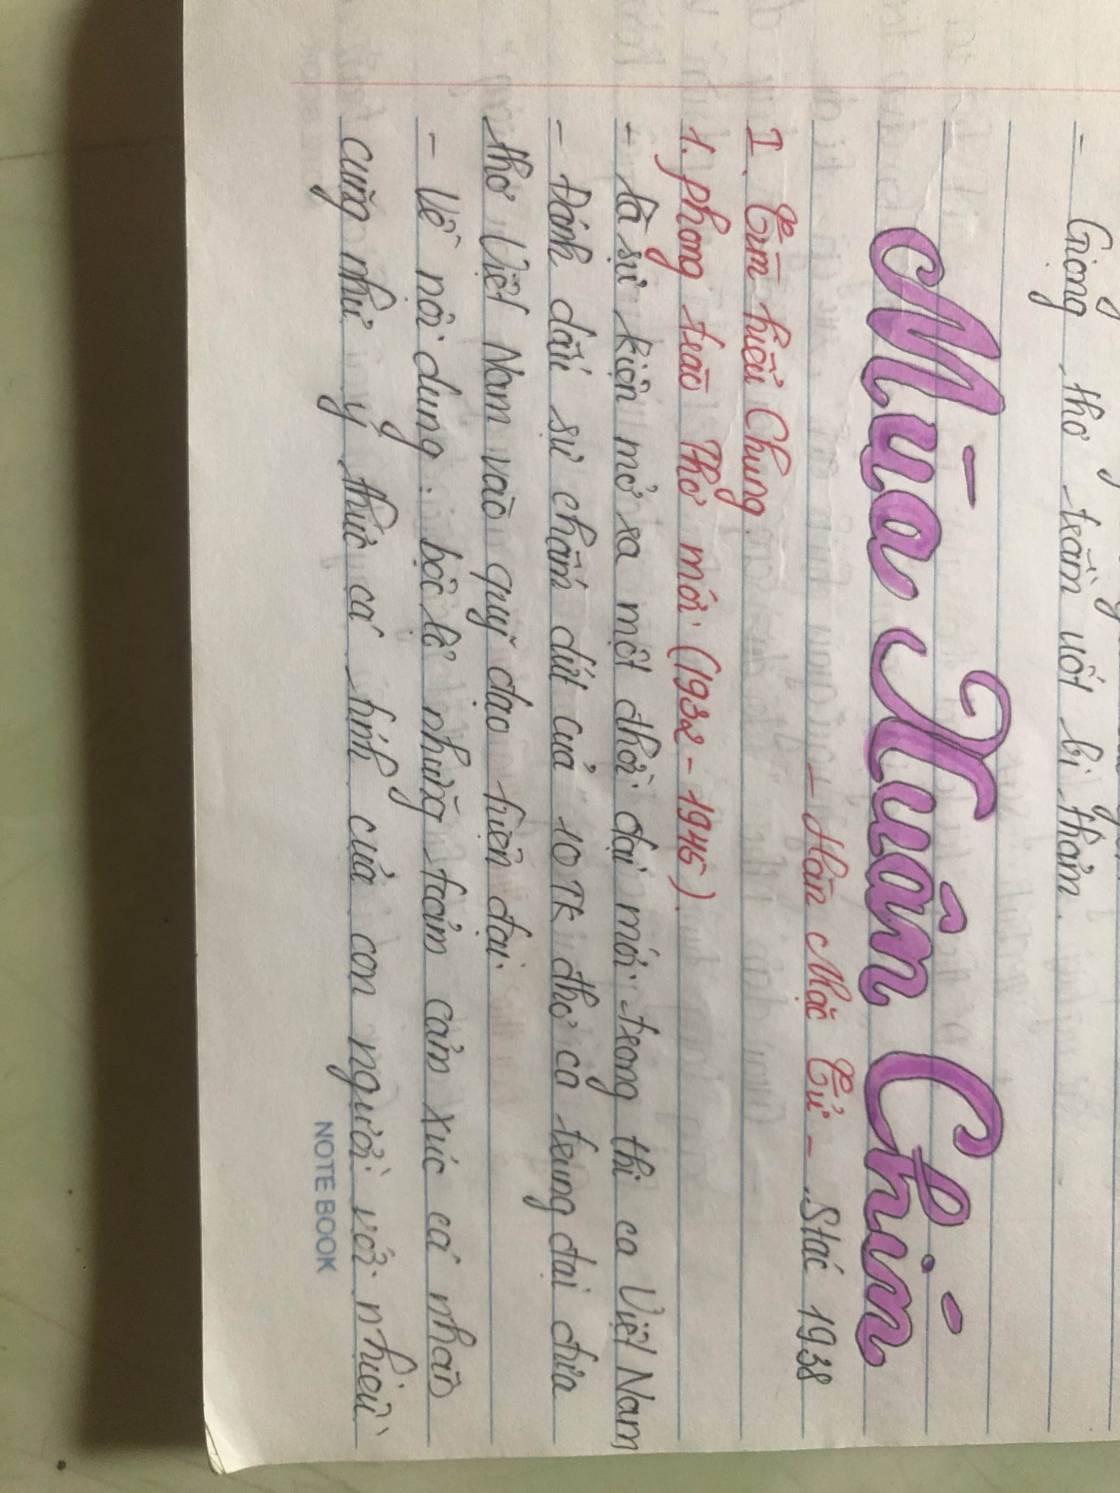 - Giọng thơ trầm uất bi thảm.
Mùa Xuân Chín
- Hàn Mặc Tử - Stác 1938
I. Tìm hiểu Chung.
1. phong trào Thơ mới (1932 - 1945).
- là sự kiện mở ra một thời đại mới trong thi ca Việt Nam
- Đánh dấu sự chấm dứt của 10 TK thơ ca trung đại đưa
thơ Việt Nam vào quỹ đạo hiện đại.
- Về nội dung: bộc lộ những tư cảm xúc cá nhân
cũng như ý thức cá tính của con người với nhiều
NOTE BOOK